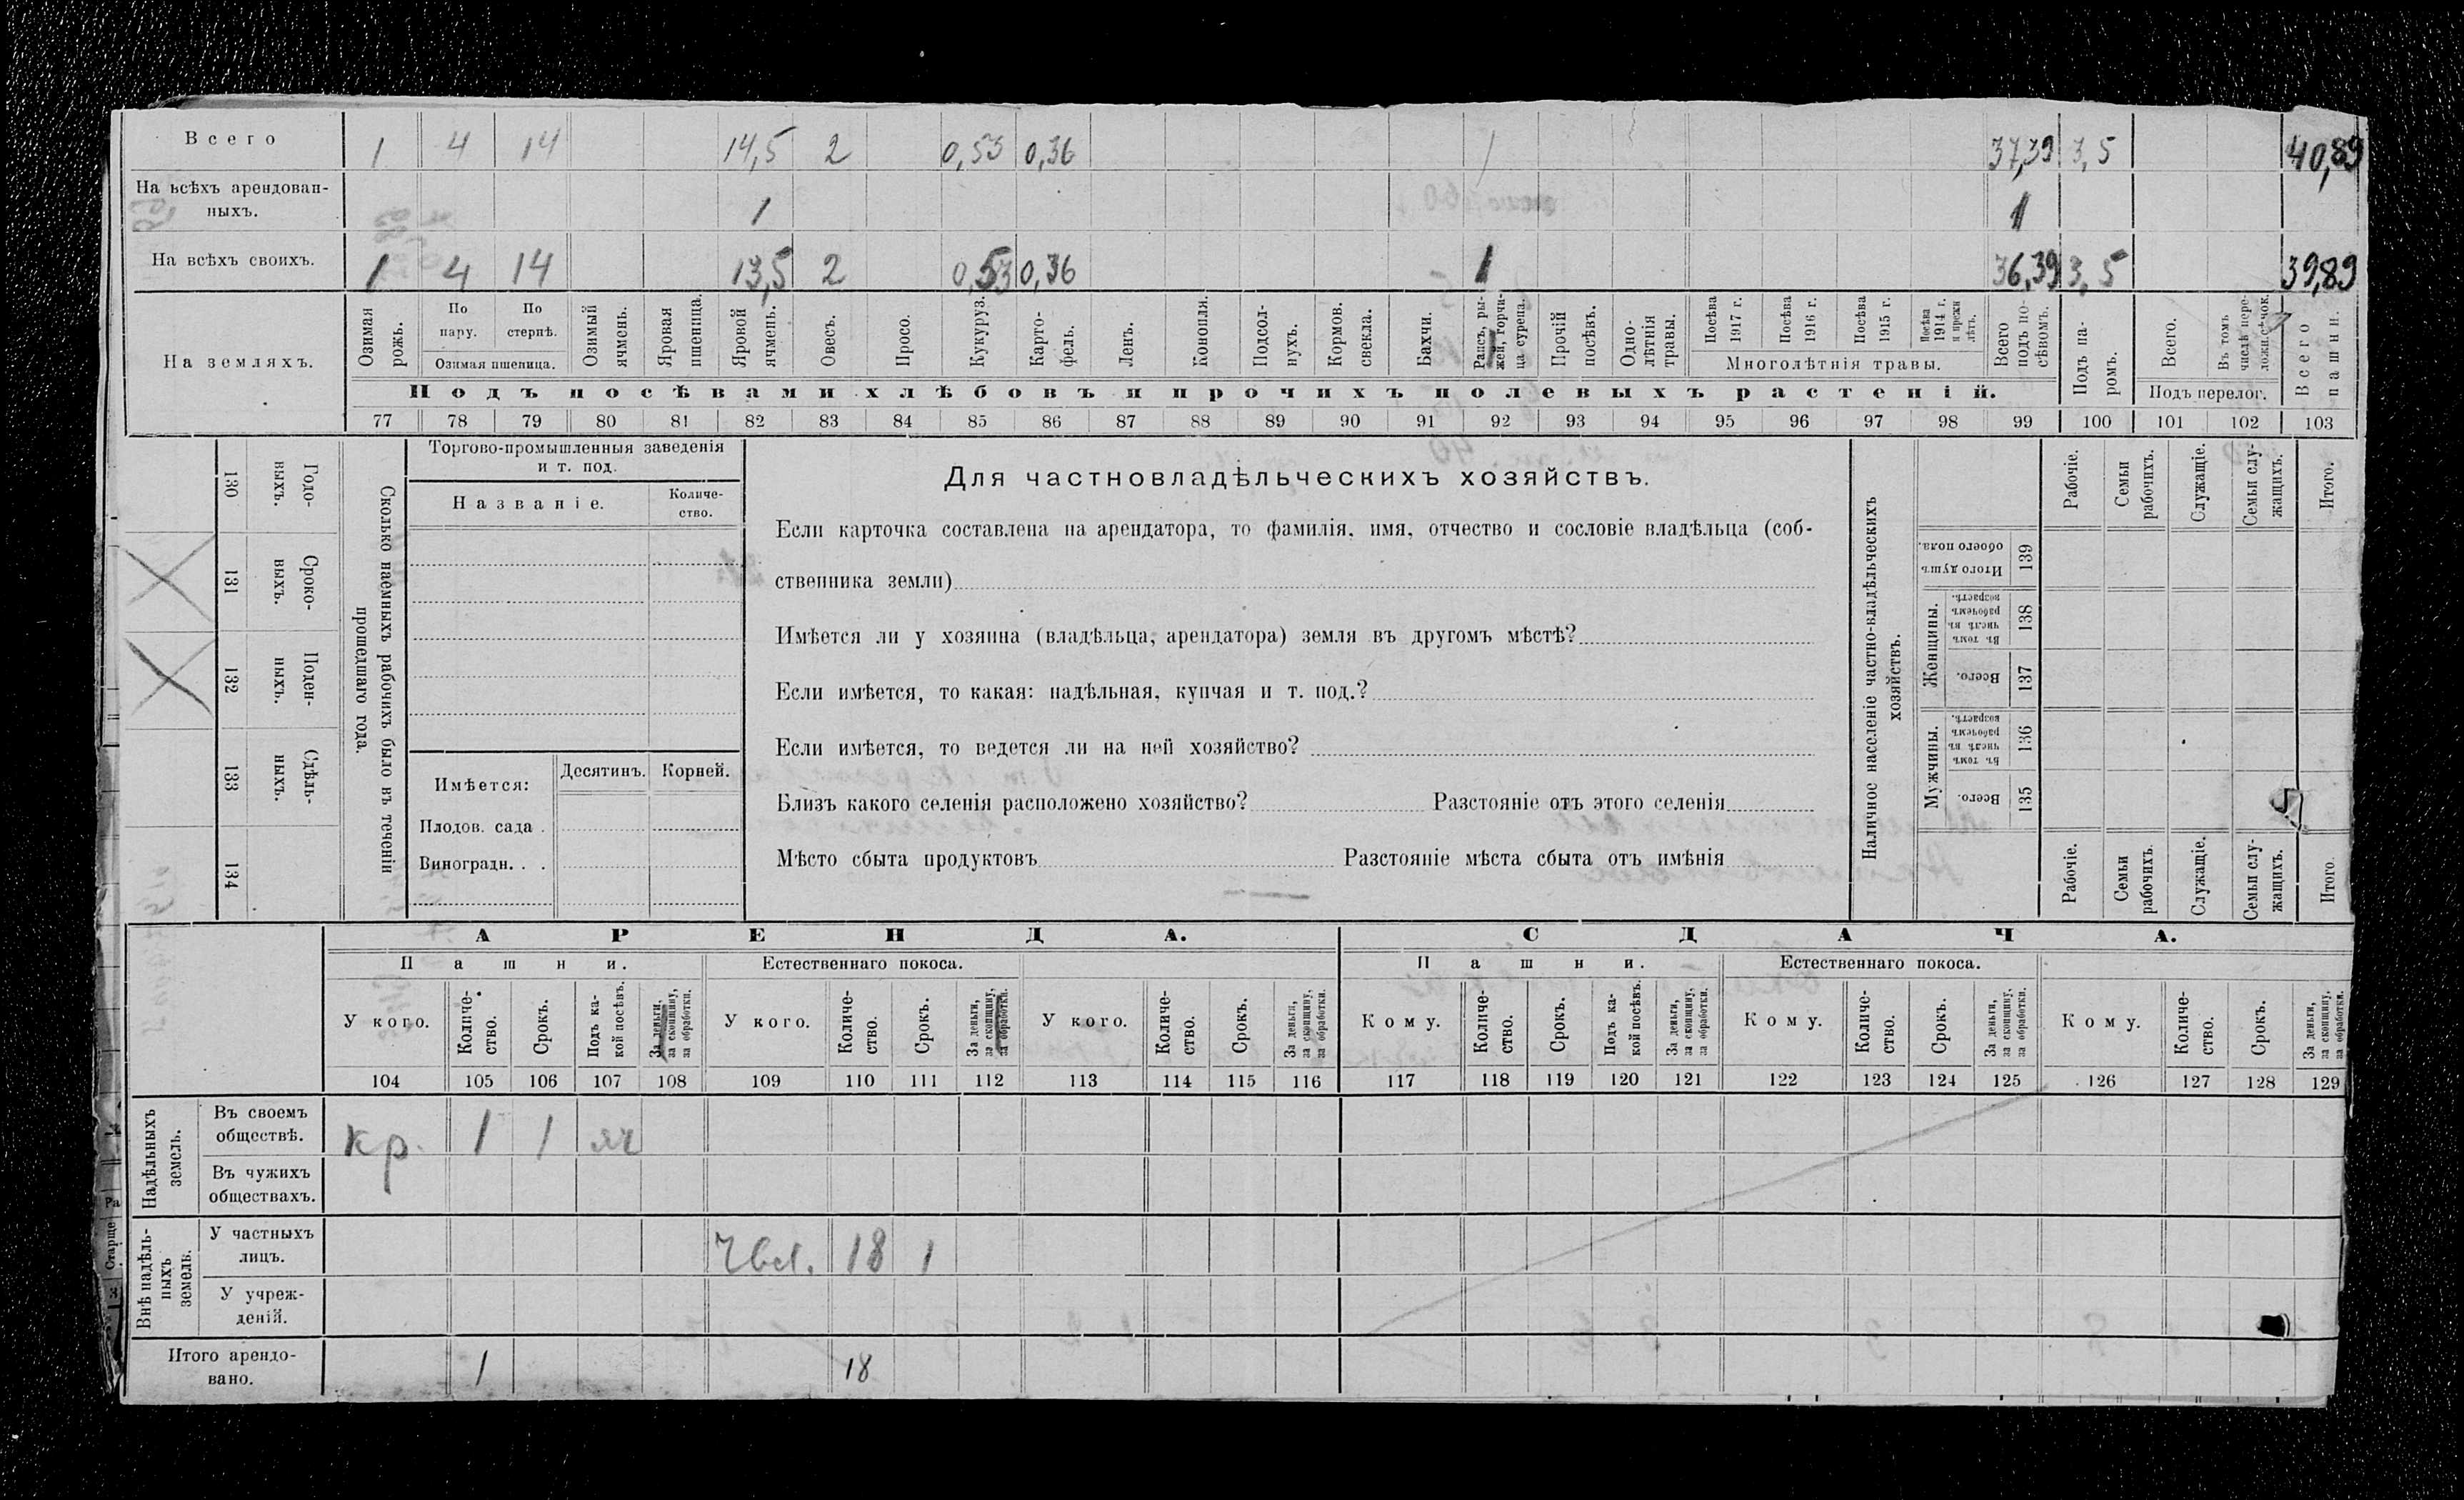 Всего 1 4 14 14,5 2 0,53 0,36 1 37,39 3,5 40,89
На всѣхъ арендован-
ныхъ. 1 1
На всѣхъ своихъ. 1 4 14 13,5 2 0,53 0,36 1 36,39 3,5 39,89
На земляхъ.
Озимая
рожь.
По
пару.
По
стернѣ.
Озимая пшеница.
Озимый
ячмень.
Яровая
пшеница.
Яровой
ячмень.
Овесъ.
Просо.
Кукуруз.
Карто-
фель.
Ленъ.
Конопля.
Подсол-
нухъ.
Кормов.
свекла.
Бахчи.
Рапсъ, ры-
жей, горчи-
ца сурепа.
Прочій
посѣвъ.
Одно-
лѣтнія
травы.
Посѣва
1917 г.
Посѣва
1916 г.
Посѣва
1915 г.
Посѣва
1914 г.
и прежн
лѣтъ.
Многолѣтнія травы.
Всего
подъ по-
сѣвомъ.
Подъ па-
ромъ.
Всего.
Въ томъ
числѣ пере-
Подъ перелог.
Всего
пашни.
Подъ посѣвами хлѣбовъ и прочихъ полевыхъ растеній.
77 78 79 80 81 82 83 84 85 86 87 88 89 90 91 92 93 94 95 96 97 98 99 100 101 102 103
Годо-
выхъ.
130
Сроко-
выхъ.
131
Поден-
ныхъ.
132
Сдѣль-
ныхъ.
133
134
Сколько наемныхъ рабочихъ было въ теченіи
прошедшаго года.
Торгово-промышленныя заведенія
и т. под.
Названіе.
Количе-
ство.
Имѣется:
Десятинъ.
Корней.
Плодов. сада .
Виноградн. . .
Для частновладѣльческихъ хозяйствъ.
Если карточка составлена на арендатора, то фамилія, имя, отчество и сословіе владѣльца (соб-
ственника земли)
Имѣется ли у хозяина (владѣльца, арендатора) земля въ другомъ мѣстѣ?
Если имѣется, то какая: надѣльная, купчая и т. под.?
Если имѣется, то ведется ли на ней хозяйство?
Близъ какого селенія расположено хозяйство? Разстояніе отъ этого селенія
Мѣсто сбыта продуктовъ Разстояніе мѣста сбыта отъ имѣнія
Наличное населеніе частно-владѣльческихъ
хозяйствъ.
Рабочіе.
Семьи
рабочихъ.
Служащіе.
Семьи слу-
жащихъ.
Итого.
Итого душъ
обоего пола.
139
Женщины.
Въ томъ
числѣ въ
рабочемъ
возрастѣ.
138
Всего.
137
Мужчины.
Въ томъ
числѣ въ
рабочемъ
возрастѣ.
136
Всего.
135
Рабочіе.
Семьи
рабочихъ.
Служащіе.
Семьи слу-
жащихъ.
Итого.
АРЕНДА.
СДАЧА.
Пашни.
Естественнаго покоса.
Пашни.
Естественнаго покоса.
У кого.
Количе-
ство.
Срокъ.
Подъ ка-
кой посѣвъ.
За деньги,
за скопщину,
за обработки.
У кого.
Количе-
ство.
Срокъ.
За деньги,
за скопщину,
за обработки.
У кого.
Количе-
ство.
Срокъ.
За деньги,
за скопщину,
за обработки.
Кому.
Количе-
ство.
Срокъ.
Подъ ка-
кой посѣвъ.
За деньги,
за скопщину,
за обработки.
Кому.
Количе-
ство.
Срокъ.
За деньги,
за скопщину,
за обработки.
Кому.
Количе-
ство.
Срокъ.
За деньги,
за скопщину,
за обработки.
104 105 106 107 108 109 110 111 112 113 114 115 116 117 118 119 120 121 122 123 124 125 126 127 128 129
Надѣльныхъ
земель.
Въ своемъ
обществѣ.
кр. 1 1 яч
Въ чужихъ
обществахъ.
Внѣ надѣль-
ныхъ
земель.
У частныхъ
лицъ.
18 1
У учреж-
деній.
Итого арендо-
вано.
1 18